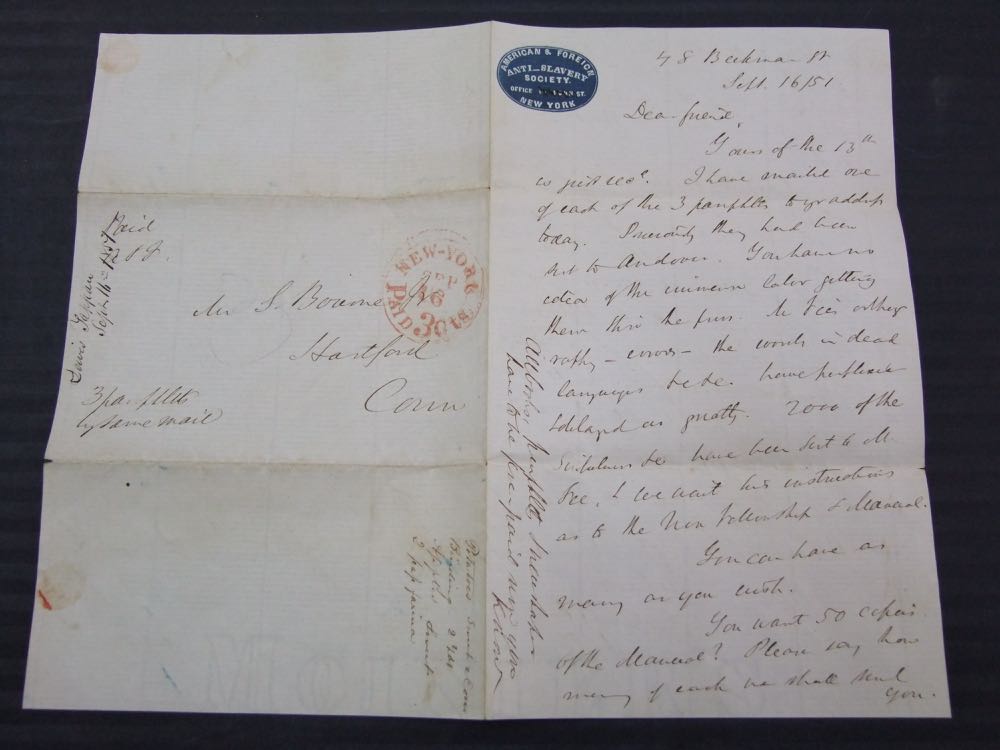 AMERICAN & FOREIGN
ANTI-SLAVERY
SOCIETY.
OFFICE ST.
NEW YORK
48 Beekman St
Sept. 16/51
Dear friend,
Yours of the 13th
is just recd. I have mailed one
of each of the 3 pamphlets to yr address
today. Previously they had been
sent to Andover. You have no
idea of the immense labor getting
them thro' the press. Mr Fee's orthog-
raphy - errors - the words in dead
languages &c &c. have perplexed
& delayed us greatly. 2000 of the
have been sent to Mr
Fee, & we wait his instructions
as to the Non Fellowship & Manual.
You can have as
many as you wish.
You want 50 copies
of the Manual? Please say how
many of each we shall send
you.
All books, pamphlets,
have to be pre-paid now you
know
NEW-YORK
SEP
16
PAID 3 cts
Mr S. Bourne Jr
Hartford
Conn
Paid
Lewis Tappan
Sept. 16th 1851
3 pamphlets
by same mail
Potatoes
Binding 2 yds
Apples
2